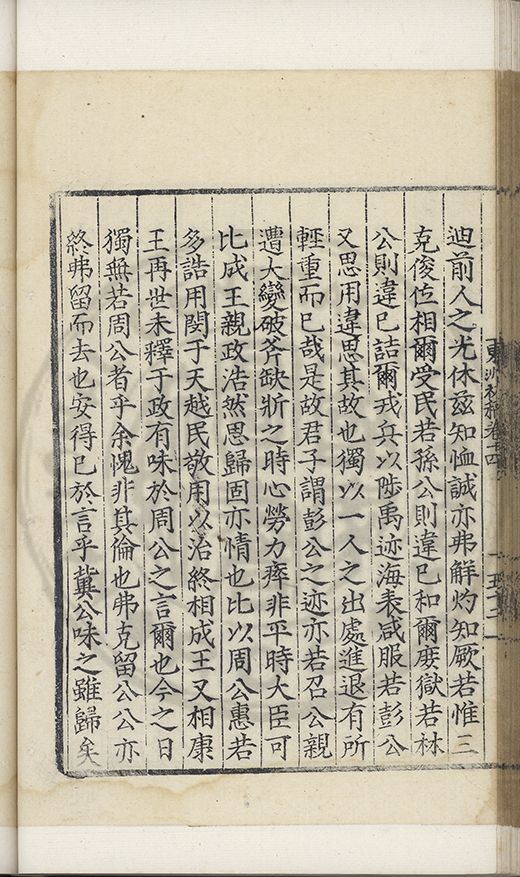 迪前人之光休茲知恤誠亦弗解灼知厥若惟三
克俊位相爾受民若孫公則違已和爾庶獄若林
公則違已詰爾戎兵以陟禹迹海表咸服若彭公
又思用違思其故也獨以一人之出處進退有所
輕重而已哉是故君子謂彭公之迹亦若召公親
遭大變破斧缺斨之時心勞力瘁非平時大臣可
比成王親政浩然思歸固亦情也比以周公惠若
多誥用閔于天越民敬用以治終相成王又相康
王再世未釋于政有味於周公之言爾也今之日
獨無若周公者乎余愧非其倫也弗克留公公亦
終弗留而去也安得已於言乎冀公味之雖歸矣
東洲初稿卷十四